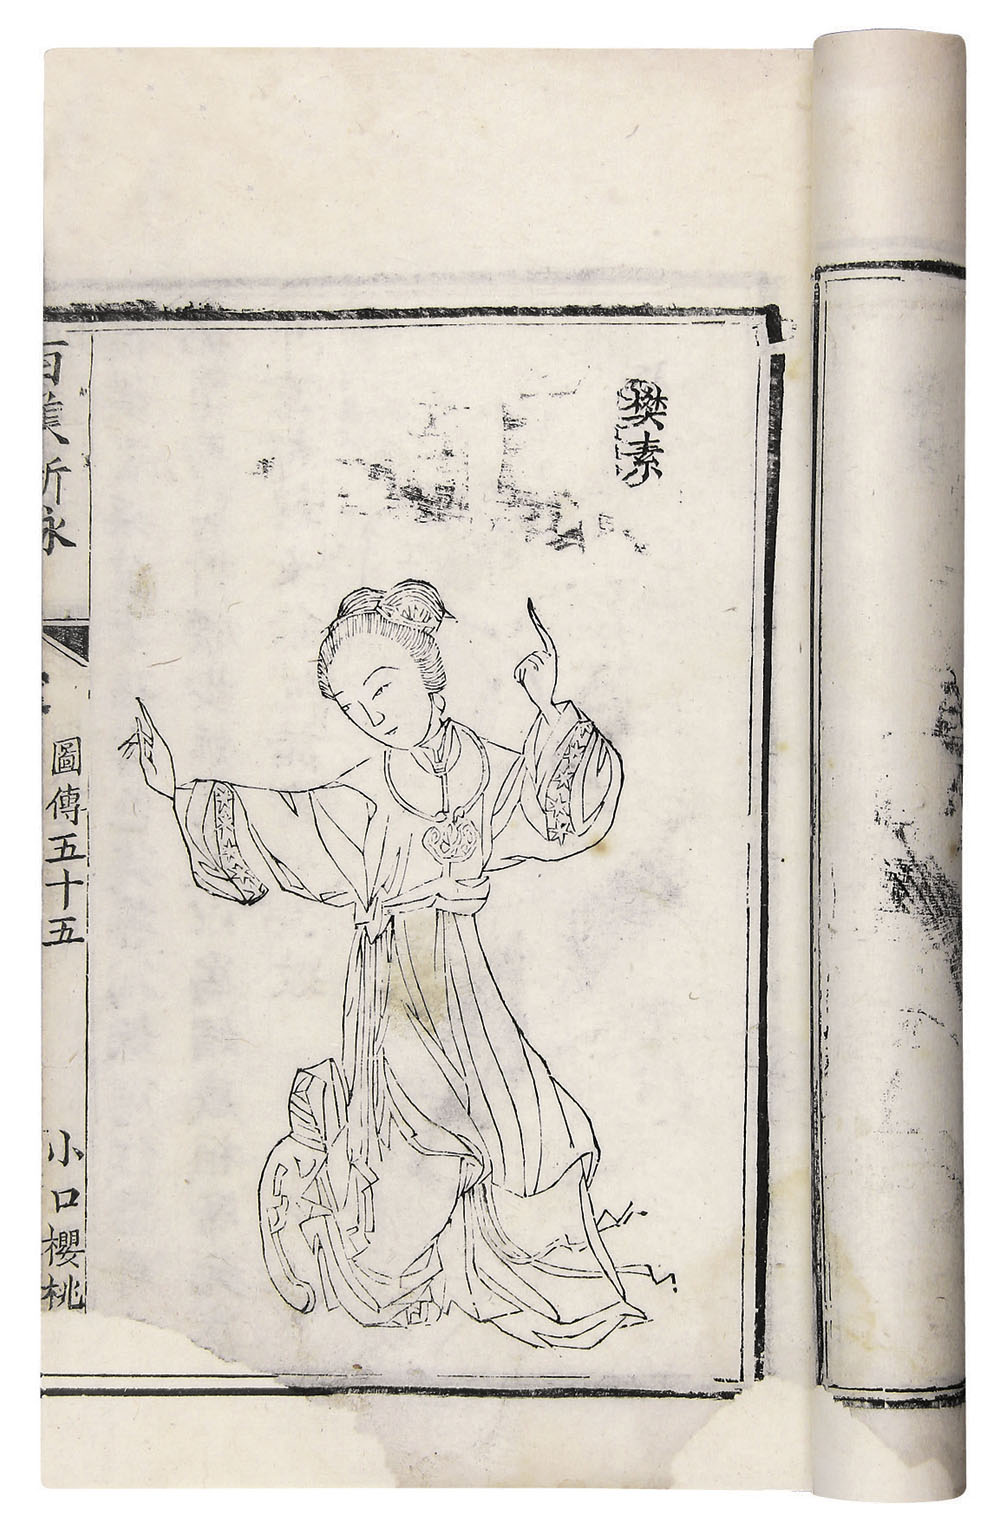 樊素
百美新詠
圖傳五十五
小口櫻桃